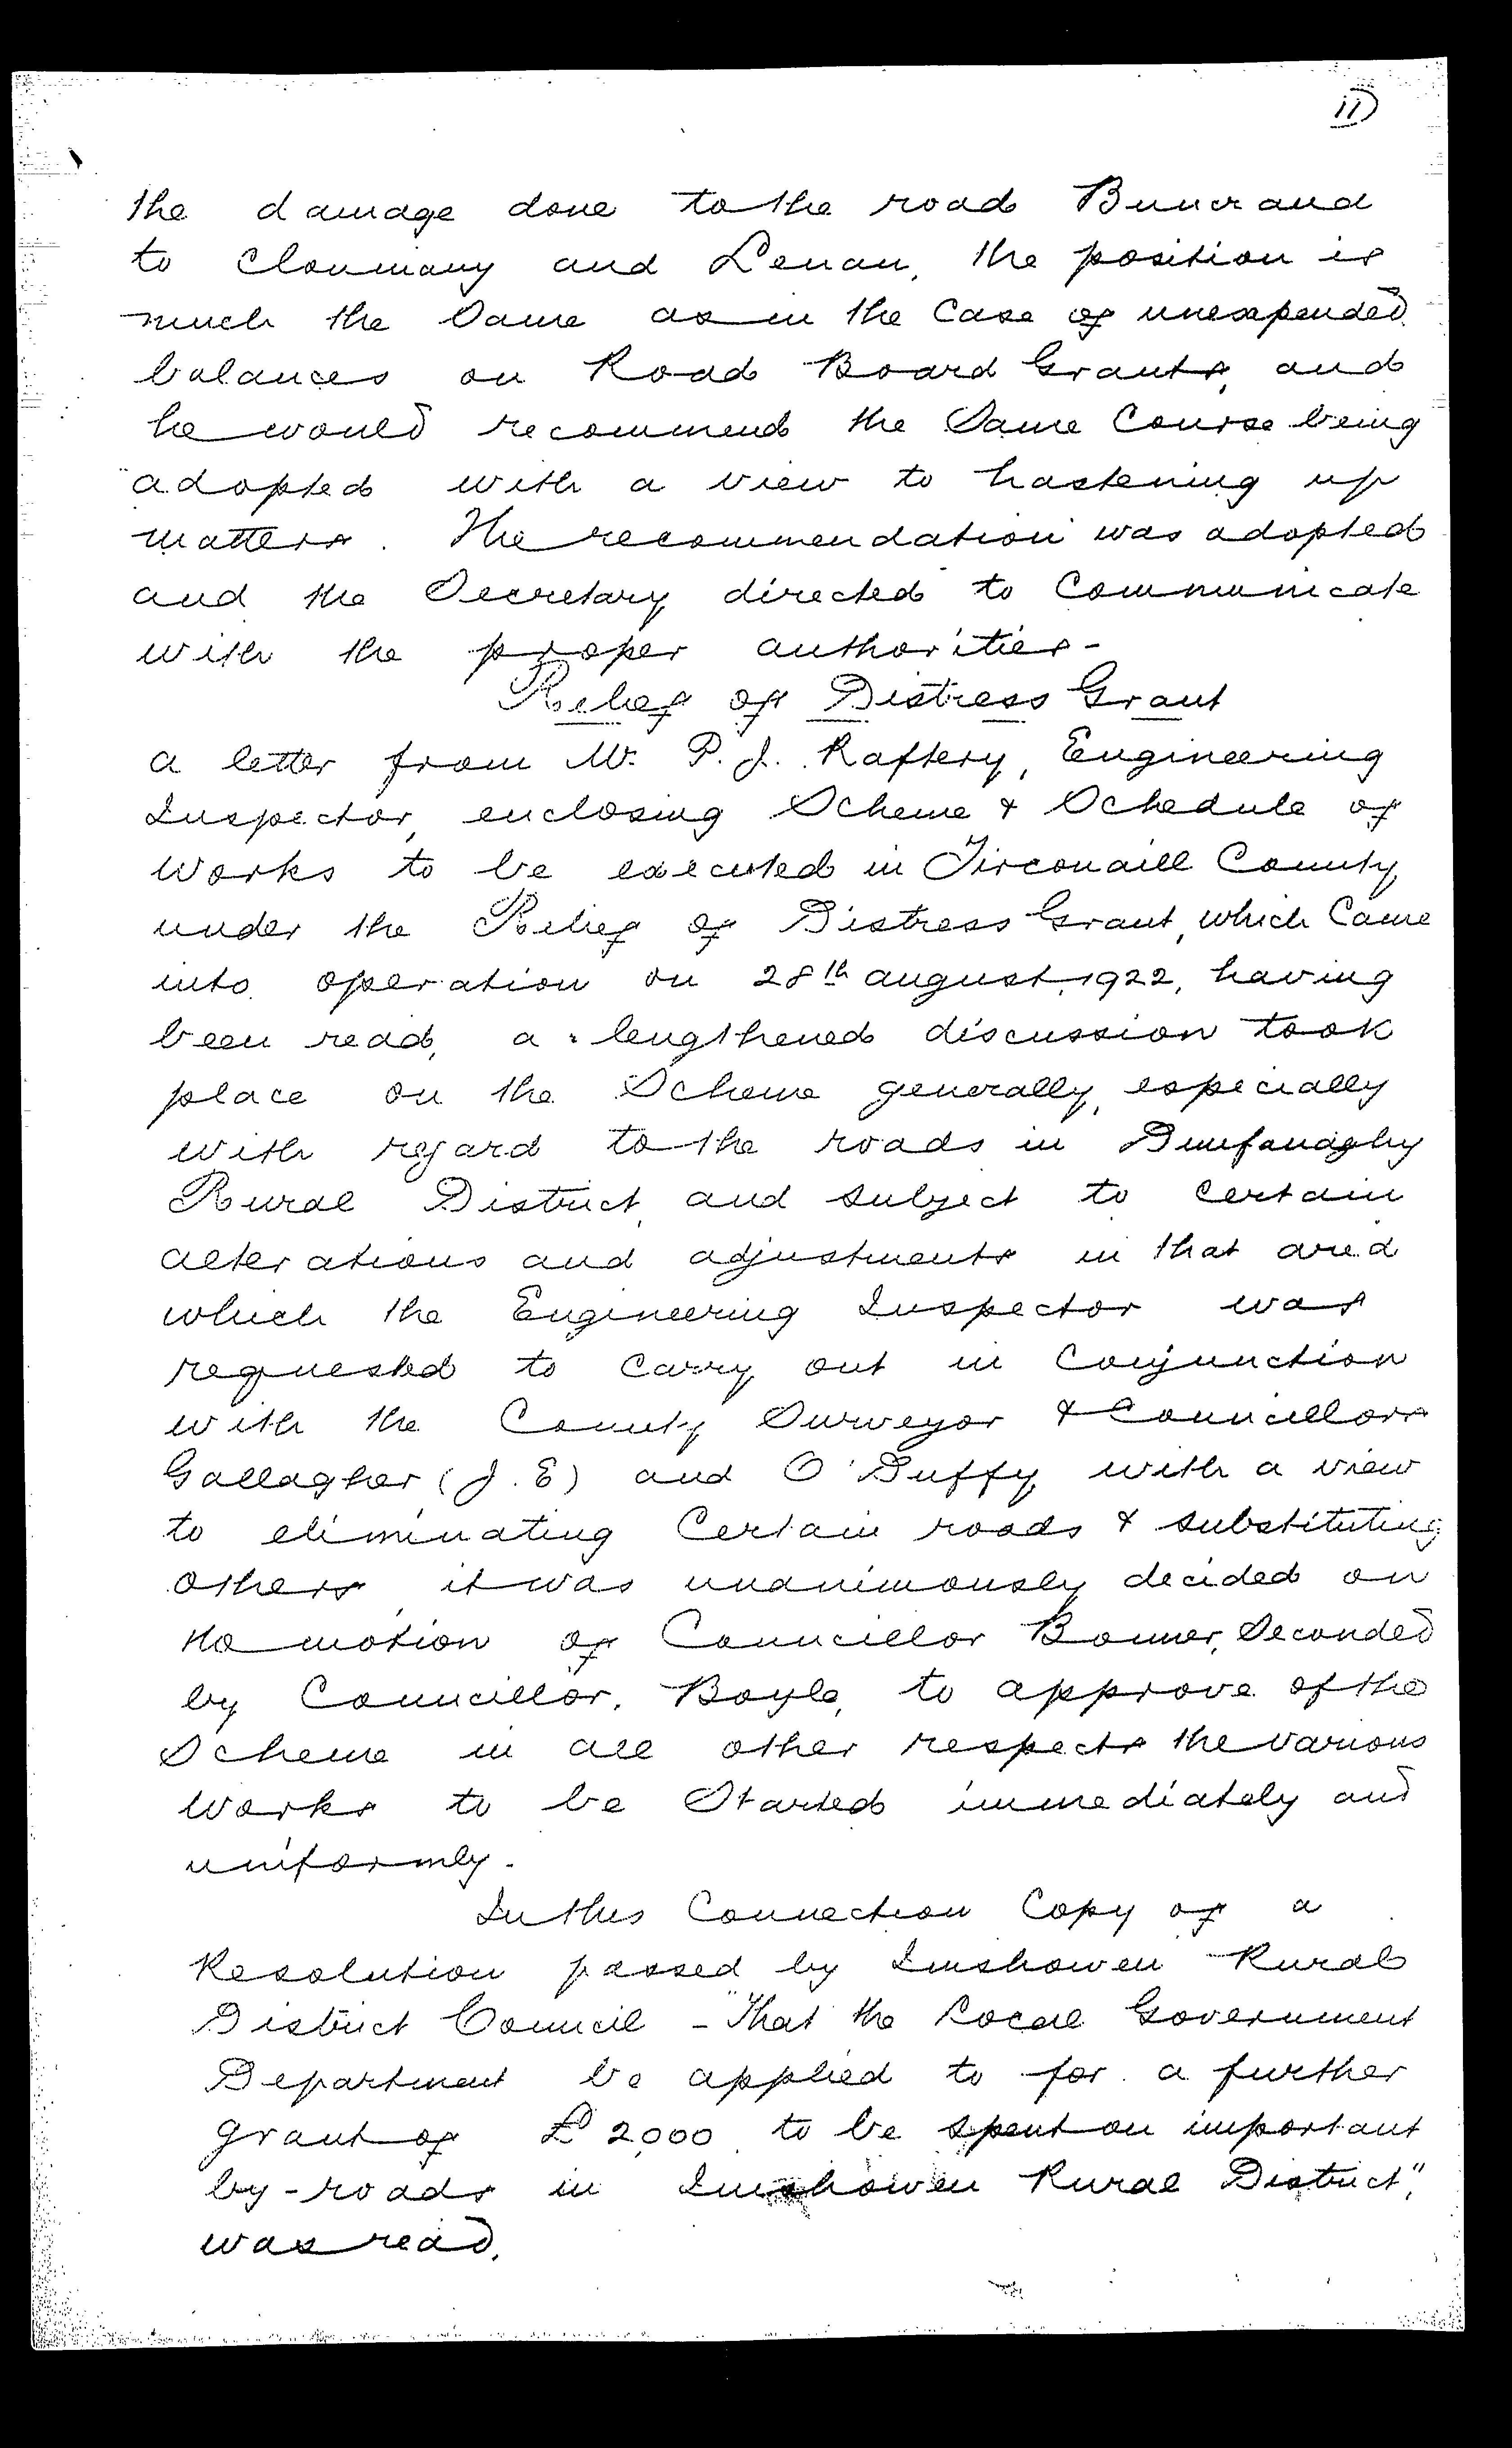 11
the damage done to the road Buncrana
to Clonmany and Lenan, the position is
much the Same as in the Case of unexpended
balances on Road Board Grants, and
he would recommend the Same Course being
adopted with a view to hastening up
matters. The recommendation was adopted
and the Secretary directed to Communicate
with the proper authorities-
Relief of Distress Grant
a letter from Mr. P. J. Raftery, Engineering
Inspector, enclosing Scheme & Schedule of
Works to be executed in Tirconaill County
under the Relief of Distress Grant, which Came
into operation on 28th august, 1922, having
been read, a lengthened discussion took
place on the Scheme generally, especially
with regard to the roads in Dunfanaghy
Rural District, and subject to Certain
alterations and adjustments in that area
which the Engineering Inspector was
requested to Carry out in Conjunction
with the County Surveyor & Councillors
Gallagher (J. E) and O'Duffy, with a view
to eliminating Certain roads & substituting
others, it was unanimously decided on
the motion of Councillor Bonner, Seconded
by Councillor, Boyle, to approve of the
Scheme in all other respects the various
Works to be Started immediately and
uniformly.
In this Connection Copy of a
Resolution passed by Inishowen Rural
District Council - "That the Local Government
Department be applied to for a further
grant of £2,000 to be spent on important
by-roads in Inishowen Rural District",
was read.